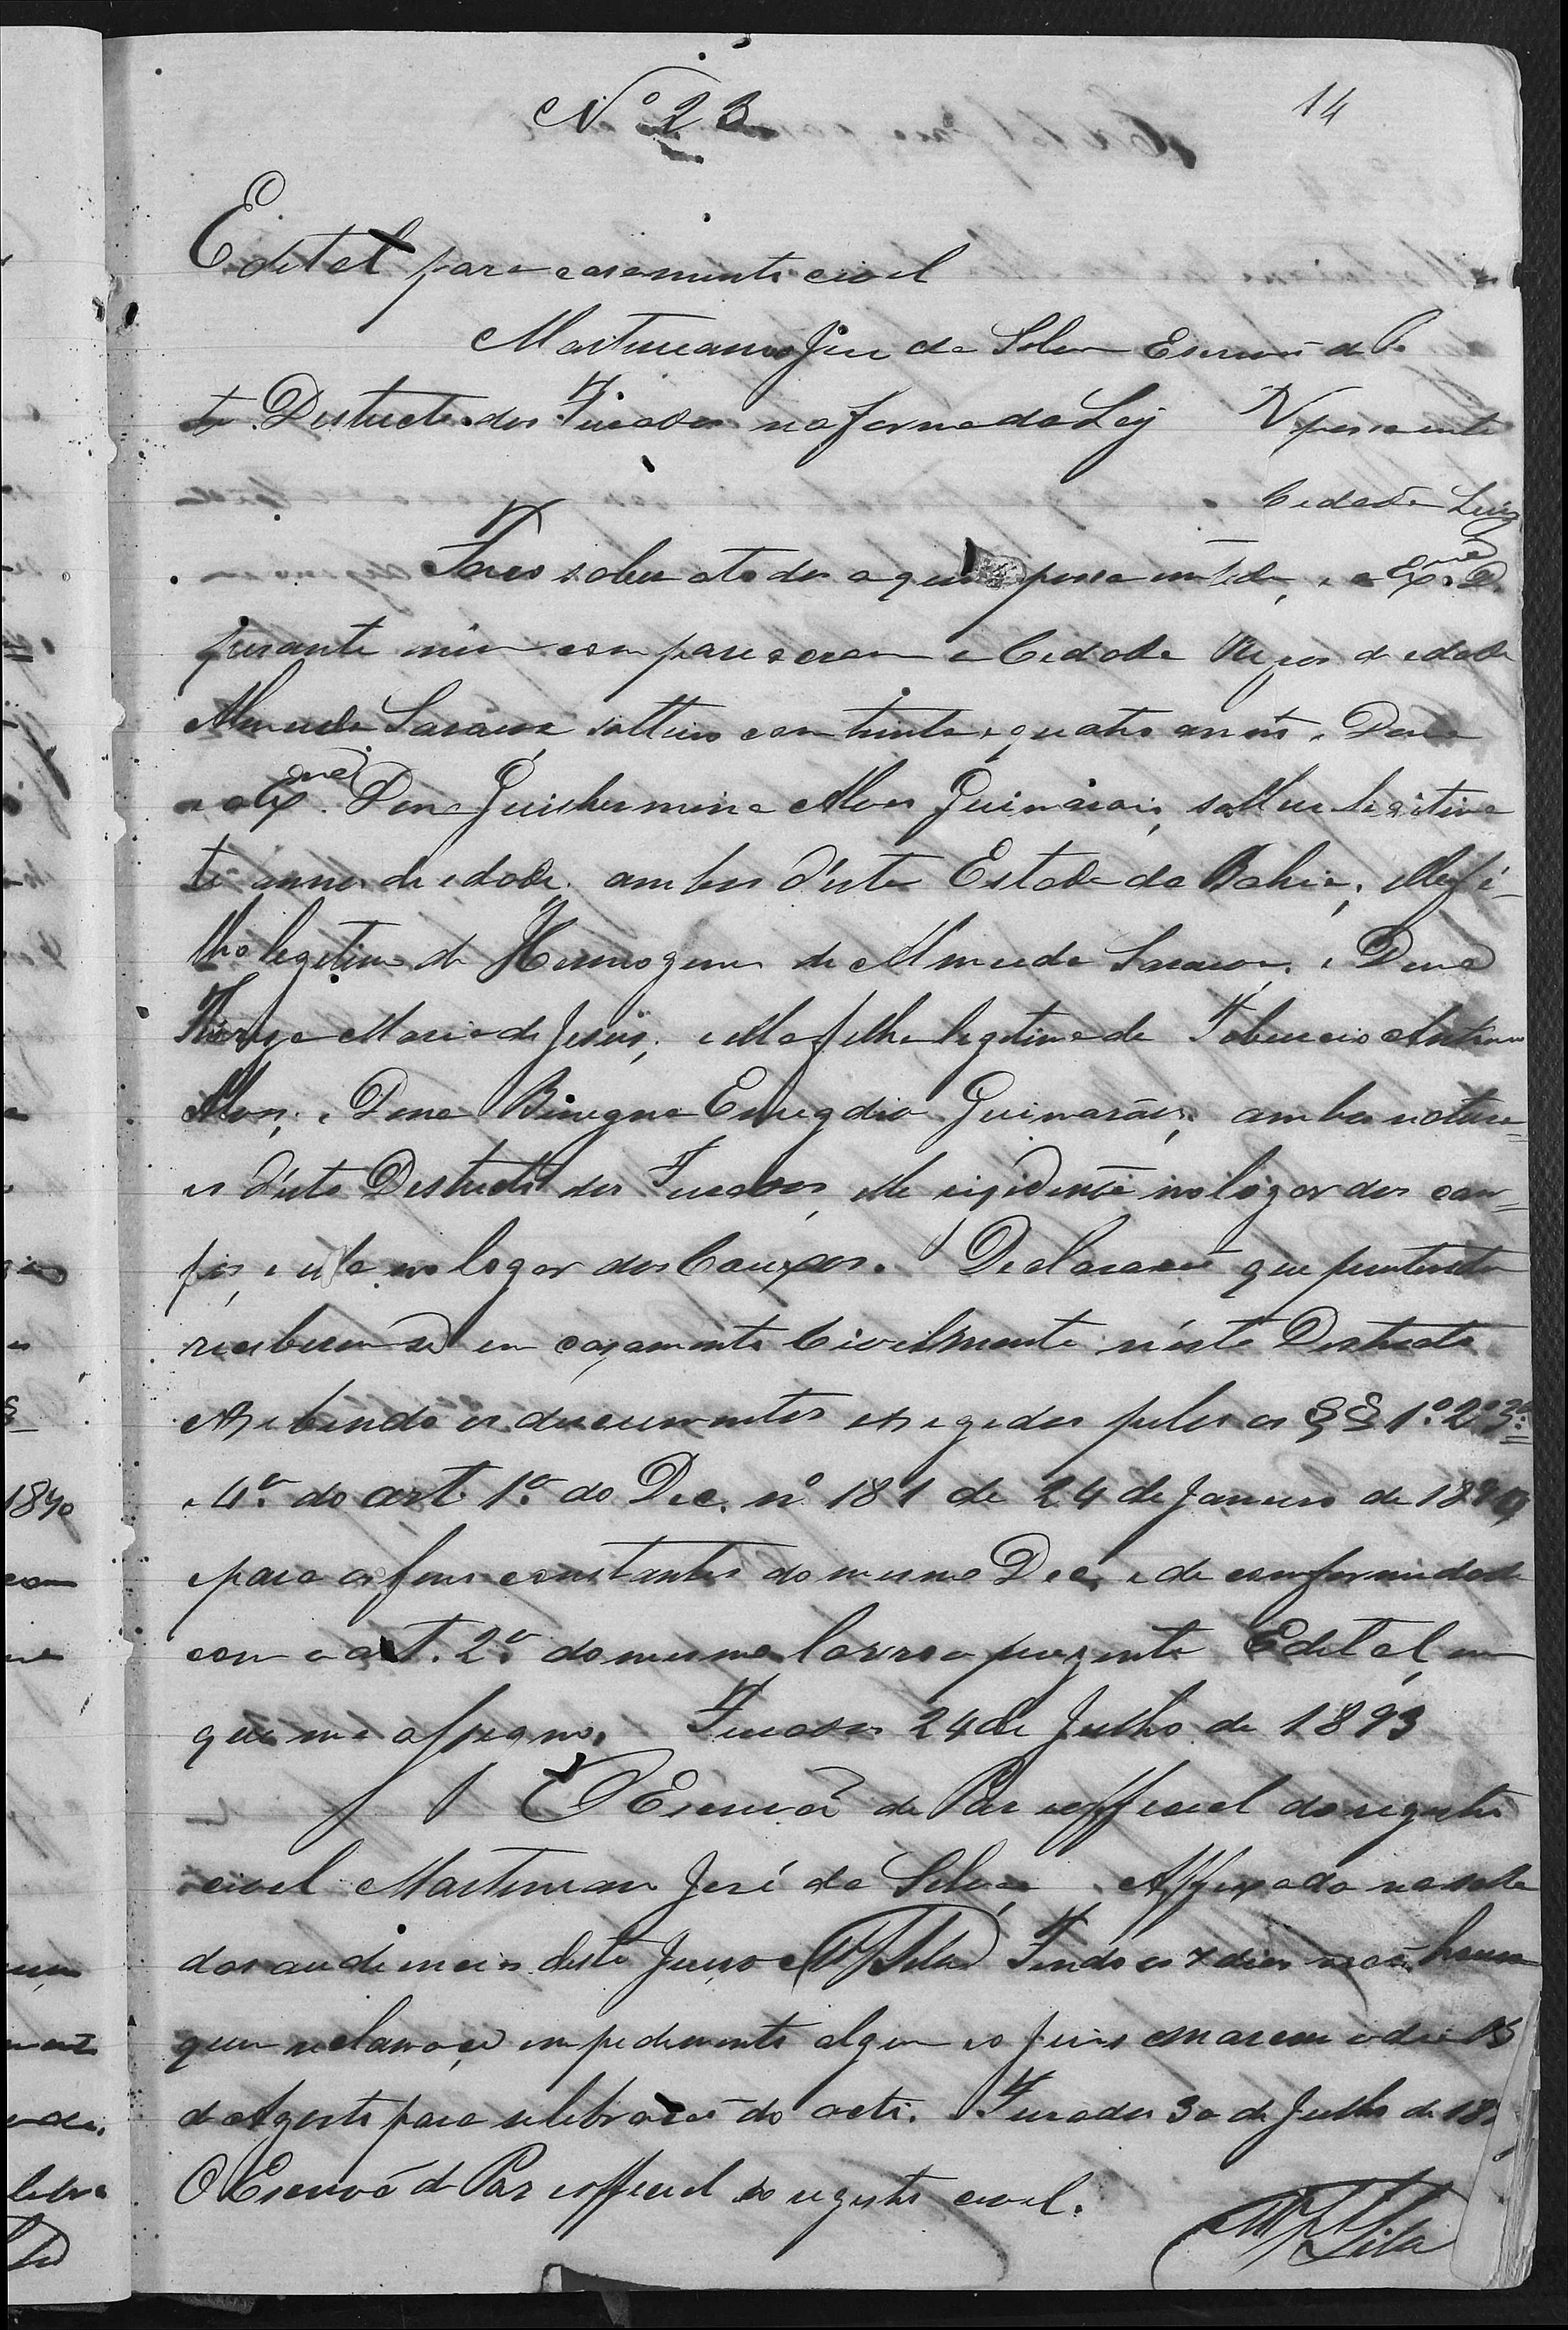 Nº 23
14
Edital para casamento civel
Martiniano José da Silva Escrivão de P.
to Destricto dos Furados na forma da Ley
Cidadão Luiz
Faço saber a todos a quem possa , e a Exma. D.
perante mim compareceram o Cidadão de edade
Almeida Saraiva solteiro com trinta e quatro annos e Dona
e a Exma. Dona Guilhermina Alves Guimarais, solteira legitima
te annos de edade, ambos d'este Estado da Bahia; elle fi-
lho legitimo de Hermogenes de Almeida Saraiva, e Dona
Maria de Jesús; ella filha legitima de Antonio
Alves, e Dona Benigna Emygdia Guimarães, ambos nature=
es d'este Destricto dos Furados, elle rezidente no logar dos cam=
pos, e ella no logar dos Campos. Declararão que pretendem
receberem-se em cazamento Civilmente n'este Destricto
exebindo os documentos exegedos pelos os §§ 1º. 2º 3º.
e 4º. do art. 1º. do Dec. nº 181 de 24 de Janeiro de 1890
e para os fins constantes do mesmo Dec. e de conformidade
com o art. 2º. do mesmo lavro o prezente Edital, em
que me assigno. Furados 24 de Julho de 1893
O Escrivão de Paz e official do registro
civel Martiniano José da Silva. Affixado na salla
das audiencias deste Juizo MJSilva Findo os 7 dias não houve
quem reclamace impedimento algum e o Juiz marcou o dia 15
de Agosto para selebração do acto. Furados 30 de Julho de 18
O Escrivão de Paz e official do registro civel.
MJSilva